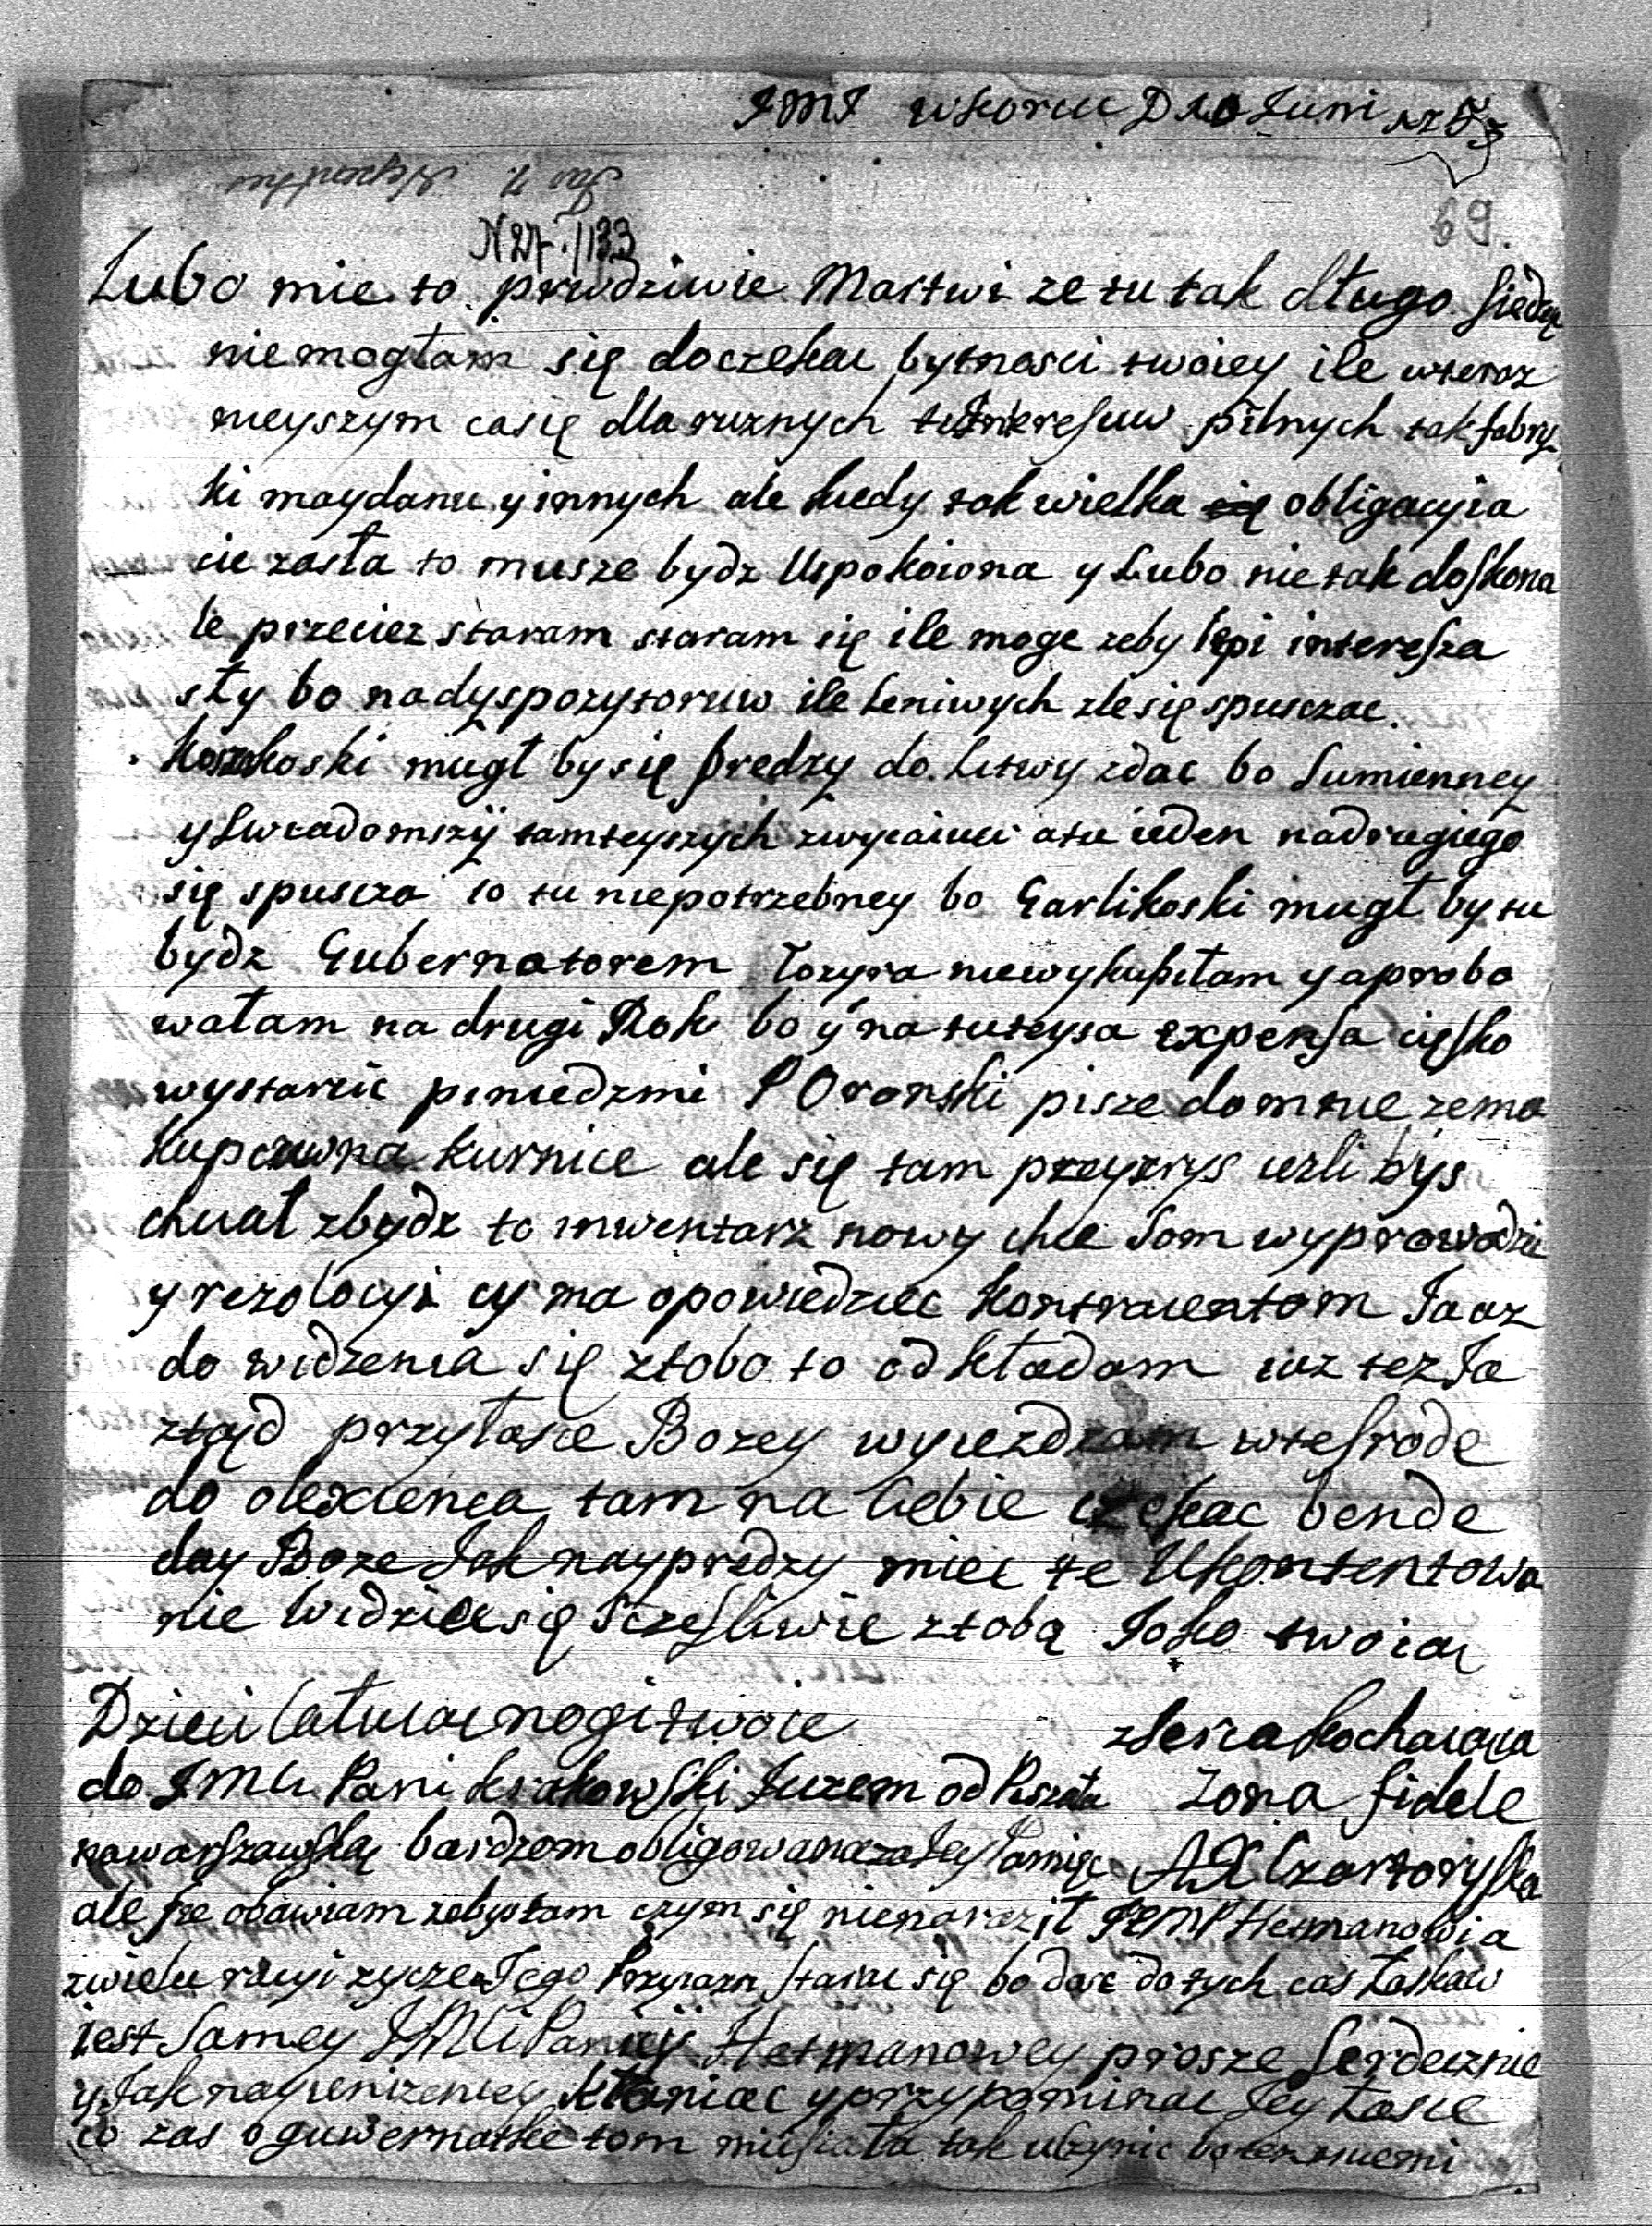 JMJ w Korcu D 10 Juni
69.
N 27. /133
Lubo mie to prwdziwie Martwi ze tu tak długo siedzę
niemogłam się doczekac bytnosci twoiey ile wteraz
nieyszym casię dla ruznych interesuw pilnych tak fabry
ki maydanu y innych ale kiedy tak wielka obligacyia
cie zasła to musze bydz Uspokoiona y Lubo nie tak doskona
le przeciez staram staram się ile moge zeby lepi interesza
sły bo na dyspozytoruw ile leniwych zle się spusczac.
Kozakoski mugł by się prędzy do Litwy zdac bo sumienney
y swiadomszÿ tamteyszych zwycaiuw a tu ieden nadrugiego
się spuscza to tu niepotrzebney bo Garlikoski mugł by tu
bydz Gubernatorem Tozyra niewykupiłam y aprobo
wałam na drugi Rok bo y na tuteysa expensa cięsko
wystarcic piniedzmi P Oranski pisze do mnie zema
kupca na kurnice ale się tam przeyzrys iezli bys
chciał zbydz to inwentarz nowy chce som wyprowadzic
y rezolocyi cy ma opowiedziec kontraentom Ja az
do widzenia się ztobo to odkładam iuz tez Ja
ztąd przyłasce Bozey wyiezdzam wte srode
do olexienca tam na Ciebie czekac bende
day Boze Jak nayprędzy miec te Ukontentowa
nie widziec się sczęsliwie ztobą Jako twoiai
Dzieci całuiac nogi twoie
zserca kochaiąca
do JMCi Pani krakowski Juzem od Pisała
zona fidele
nawarszawską bardzom obligowana za Jey Pamięc
AX Czartoryska
ale się obawiam zebys tam czym się nienaraził JEMP Hetmanowi a
zwielu racyi zycze Jego Przyiazn staraс się bo dosc dotych cas Łaskaw
iest Samey JMCi Panieÿ Hetmanowey prosze serdecznie
y Jak nayunizeniey kłaniac y przypominac Jey Łasce
co zas o guwernatke tom musiała tak uczynic bo